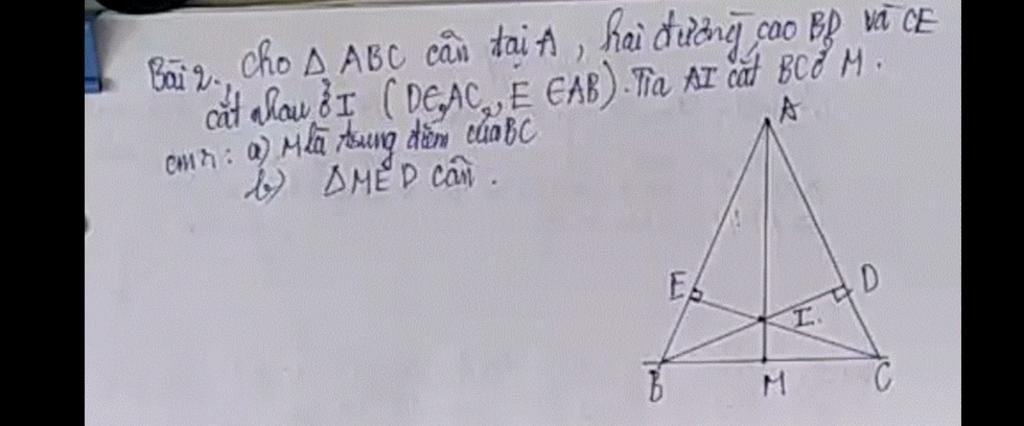 Bài 2., Cho Δ ABC cân tại A, hai đường cao BD và CE
cắt nhau ở I (D∈AC, E∈AB). Tia AI cắt BC ở M.
cmr: a) M là trung điểm của BC
b) ΔMED cân.
A
E
D
I.
B
M
C